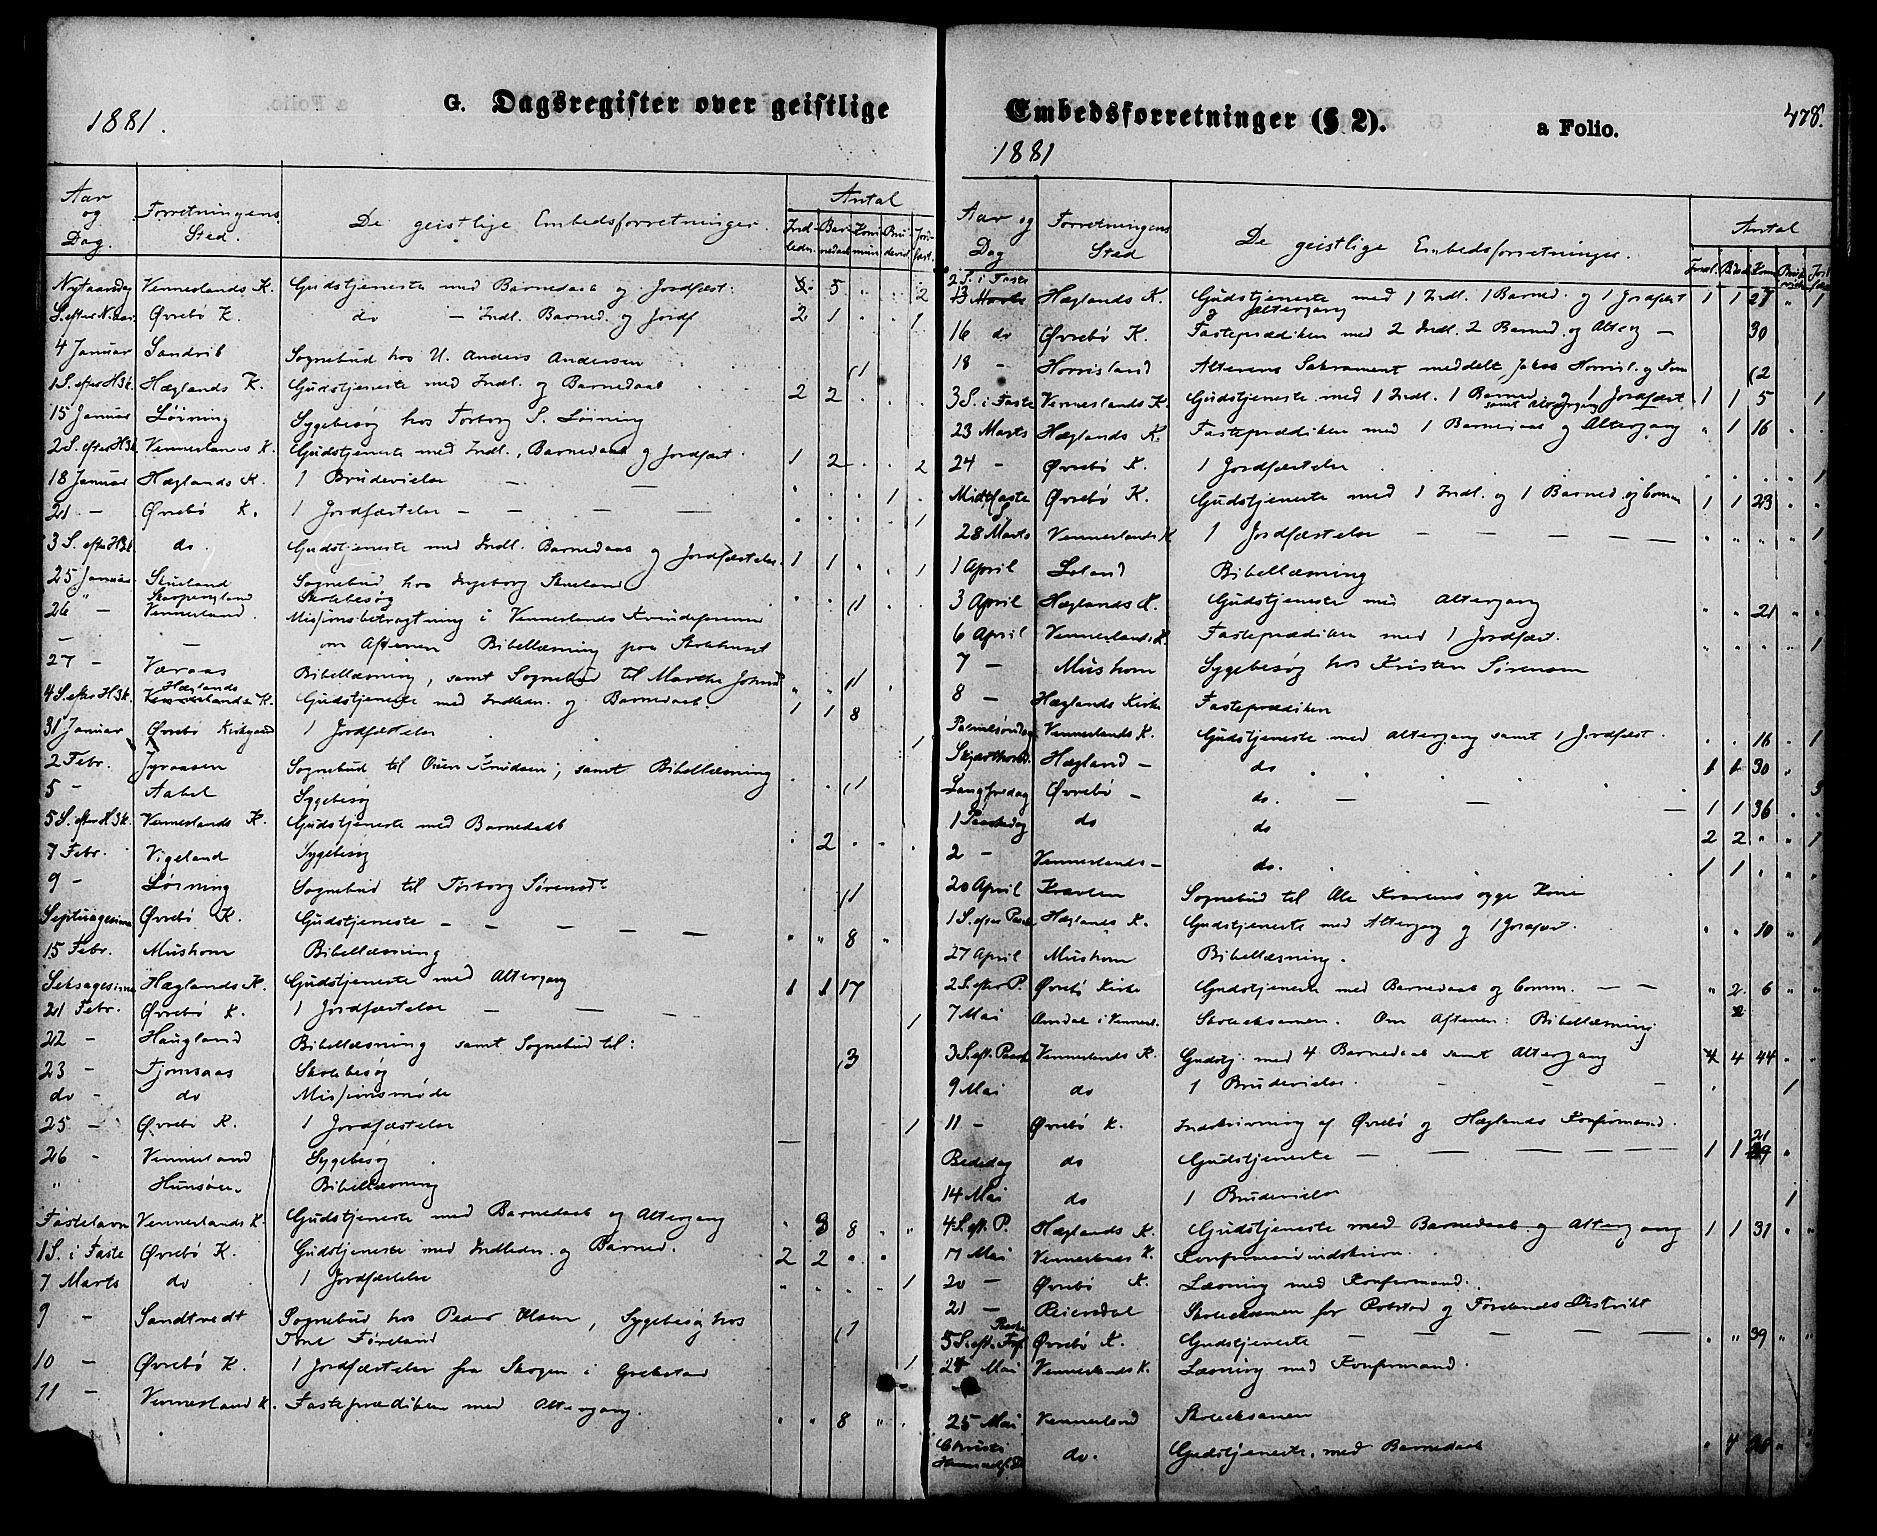 1881.
G. Dagsregister over geistlige
Aar og Dag. Forretningens Sted. De geistlige Embedsforretninger. Antal
Indledn. Barnedaab Kommun Brudevid. Jordfæst.
Nytaarsdag Vennerlands K. Gudstjeneste med Barnedaab og Jordfæst: 5 " " 2
S. efter N.aar Øvrebø K. do - Indl. Barned. og Jordf 2 1 . . 1
4 Januar Sandrib Sognebud hos U. Anders Andersen (1
1 S. efter H3k. Hæglands K. Gudstjeneste med Indl. og Barnedaab 2 2 . . .
15 Januar Løining Sygebesøg hos Torborg S. Løining
2 S. efter H3k Vennerlands K. Gudstjeneste med Indl., Barnedaab og Jordfæst. 1 2 . . 2
18 Januar Hæglands K. 1 Brudevielse - - " . . 1 .
21 - Øvrebø K. 1 Jordfæstelse - - - - . . . . 1
3 S. efter H3k do. Gudstjeneste med Indl. Barnedaab og Jordfæstelse. 1 1 . . 1
25 Januar Skueland Sognebud hos Ingeborg Skueland (1
" Skarpengland Skolebesøg
26 - Vennerland Missionsbetragtning i Vennerlands Kvindeforening
- - om Aftenen Bibellæsning paa Skolehuset
27 - Væraas Bibellæsning, samt Sognebud til Marthe Johnsd " " (1
4 S. efter H3k. Hæglands K. Gudstjeneste med Indledn. og Barnedaab. 1 1 8
31 Januar Øvrebø Kirkegaard 1 Jordfæstelse 1
2 Febr. Jyraasen Sognebud til Ouen Knudsen, samt Bibellæsning (1
5 - Aabel Sygebesøg
5 S. efter H3k. Vennerlands K. Gudstjeneste med Barnedaab . 2 . . .
7 Febr. Vigeland Sygebesøg
9 - Løining Sognebud til Torborg Sørensdt (1
Septuagesima Øvrebø K. Gudstjeneste - - - - - " " 8 "
15 Febr. Mushom Bibellæsning
Seksagesima Hæglands K. Gudstjeneste med Altergang 1 1 17
21 Febr. Øvrebø K. 1 Jordfæstelse - - - 1
22 - Haugland Bibellæsning samt Sognebud til: (3
23 - Fjomsaas Skolebesøg
do - do Missionsmøde
25 - Øvrebø K. 1 Jordfæstelse 1
26 - Vennerland Sygebesøg
" Hunsøen Bibellæsning
Fastelavn Vennerlands K. Gudstjeneste med Barnedaab og Altergang " 3 8 " "
1 S. i Faste Øvrebø K. Gudstjeneste med Indledn. og Barned. 2 2 " "
7 Marts do 1 Jordfæstelse " . . . 1
9 - Sandtvedt Sognebud hos Peder Olsen, Sygebesøg hos (1
Tone Føreland
10 - Øvrebø K. 1 Jordfæstelse fra Skogen i Grebstad 1
11 - Vennerland K. Fasteprædiken med Altergang. " " 8 " .
Embedsforretninger (§ 2).
a Folio.
478.
1881
Aar og Dag Forretningens Sted De geistlige Embedsforretninger. Antal
2 S. i Faste
13 Marts Hæglands K. Gudstjeneste med 1 Indl. 1 Barned. og 1 Jordfæst 1 1 27 " 1
og Altergang
16 do Øvrebø K. Fasteprædiken med 2 Indl. 2 Barned. og Alterg - 30
18 - Horrisland Alterens Sakrament meddelt Jakob Horrisl. og (2
3 S. i Faste Vennerslands K. Gudstjeneste med 1 Indl. 1 Barned og 1 Jordfæst. 1 1 5 1
samt Altergang
23 Marts Hæglands K. Fasteprædiken med 1 Barnedaab og Altergang " 1 16 . .
24 - Øvrebø K. 1 Jordfæstelse . . . . 1
Midtfaste Øvrebø K. Gudstjeneste med 1 Indl. og 1 Barned. og Comm 1 1 23 . .
28 Marts Vennerlands K 1 Jordfæstelse - - - - - . . " . 1
1 April Loland Bibellæsning
3 April Hæglands K. Gudstjeneste med Altergang " " 21 " .
6 April Vennerlands K. Fasteprædiken med 1 Jordfæst. 1
7 - Mushom Sygebesøg hos Kristen Sørensen
8 - Hæglands Kirke Fasteprædiken
Palmesøndag Vennerlands K. Gudstjeneste med Altergang samt 1 Jordfæst. . . 16 . 1
Skjærthorsd. Hægland - do 1 1 30 "
Langfredag Øvrebø - do. - - - 1 1 36 . 3
1 Paaskedag do do 2 2 " " 1
2 - Vennerlands - do. 1 1 " . "
20 April Kvarten Sognebud til Ole Kvartens syge Kone
1 S. efter Paaske Hæglands K. Gudstjeneste med Altergang og 1 Jordfæst. " . 10 " 1
27 April Mushom Bibellæsning.
2 S. efter P. Øvrebø Kirke Gudstjeneste med Barnedaab og Comm. - - " 2 6 " "
7 Mai Omdal i Vennersl. Skoleeksamen. Om Aftenen: Bibellæsning
3 S. eft. Paaske Vennerlands K. Gudstj. med 4 Barnedaab samt Altergang 4 4 44 " .
9 Mai do 1 Brudevielse. - - - . 1
11 - Øvrebø K. Indskrivning af Øvrebø og Hæglands Konfirmand.
Bededag do Gudstjeneste - - - - - - 1 1 21 "
14 Mai do 1 Brudevielse 1
4 S. eft. P. Hæglands K. Gudstjeneste med Barnedaab og Altergang 1 1 31 " "
17 Mai Vennerlands K. Konfirmandindskrivn.
20 - Øvrebø K. Læsning med Konfirmand.
21 - Reiersdal Skoleeksamen for Robstad og Førelands Distrikt
5 S. eft. Paaske Øvrebø K. Gudstjeneste - - - - - - . " 39 " "
24 Mai Vennerlands K. Læsning med Konfirmand.
25 Mai Vennerland Skoleeksamen
Christi Himmelf.D do. Gudstjeneste, med Barnedaab " 4 "